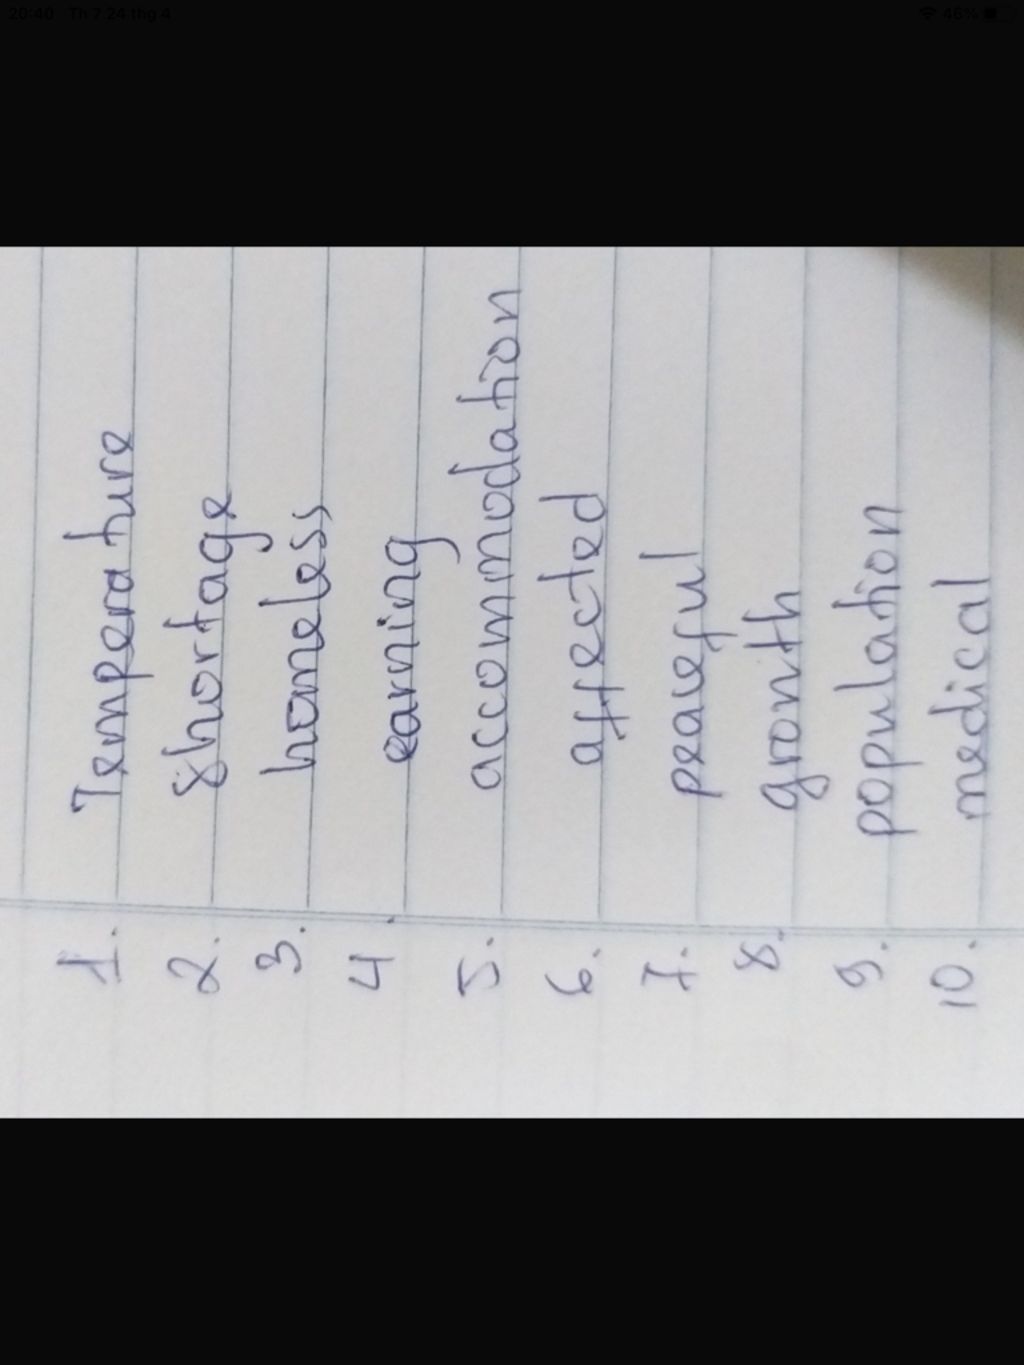 20:40 Th 7 24 thg 4 46%
1. Temperature
2. Shortage
3. homeless
4. earning
5. accommodation
6. affected
7. peaceful
8. gronth
9. population
10. medical